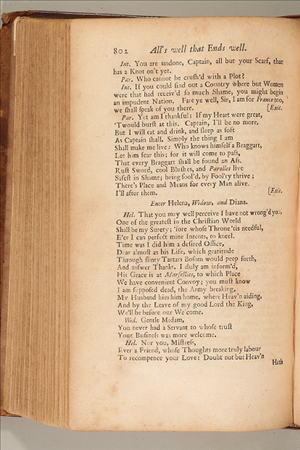 802 All's well that Ends well.
Int. You are undone, Captain, all but your Scarf, that
has a Knot on't yet.
Par. Who cannot be crush'd with a Plot?
Int. If you could find out a Country where but Women
were that had receiv'd so much Shame, you might begin
an impudent Nation. Fare ye well, Sir, I am for France too,
we shall speak of you there. [Exit.
Par. Yet am I thankful: If my Heart were great,
'Twould burst at this. Captain, I'll be no more,
But I will eat and drink, and sleep as soft
As Captain shall. Simply the thing I am
Shall make me live: Who knows himself a Braggart,
Let him fear this; for it will come to pass,
That every Braggart shall be found an Ass.
Rust Sword, cool Blushes, and Parolles live
Safest in Shame; being fool'd, by Fool'ry thrive;
There's Place and Means for every Man alive.
I'll after them. [Exit.
Enter Helena, Widow, and Diana.
Hel. That you may well perceive I have not wrong'd you,
One of the greatest in the Christian World
Shall be my Surety; 'fore whose Throne 'tis needful,
E'er I can perfect mine Intents, to kneel.
Time was I did him a desired Office,
Dear almost as his Life, which gratitude
Through flinty Tartars Bosom would peep forth,
And answer Thanks. I duly am inform'd,
His Grace is at Marseilles, to which Place
We have convenient Convoy; you must know
I am supposed dead, the Army breaking,
My Husband hies him home, where Heav'n aiding,
And by the Leave of my good Lord the King,
We'll be before our Welcome.
Wid. Gentle Madam,
You never had a Servant to whose trust
Your Business was more welcome.
Hel. Nor you, Mistress,
Ever a Friend, whose Thoughts more truly labour
To recompence your Love: Doubt not but Heav'n
Hath